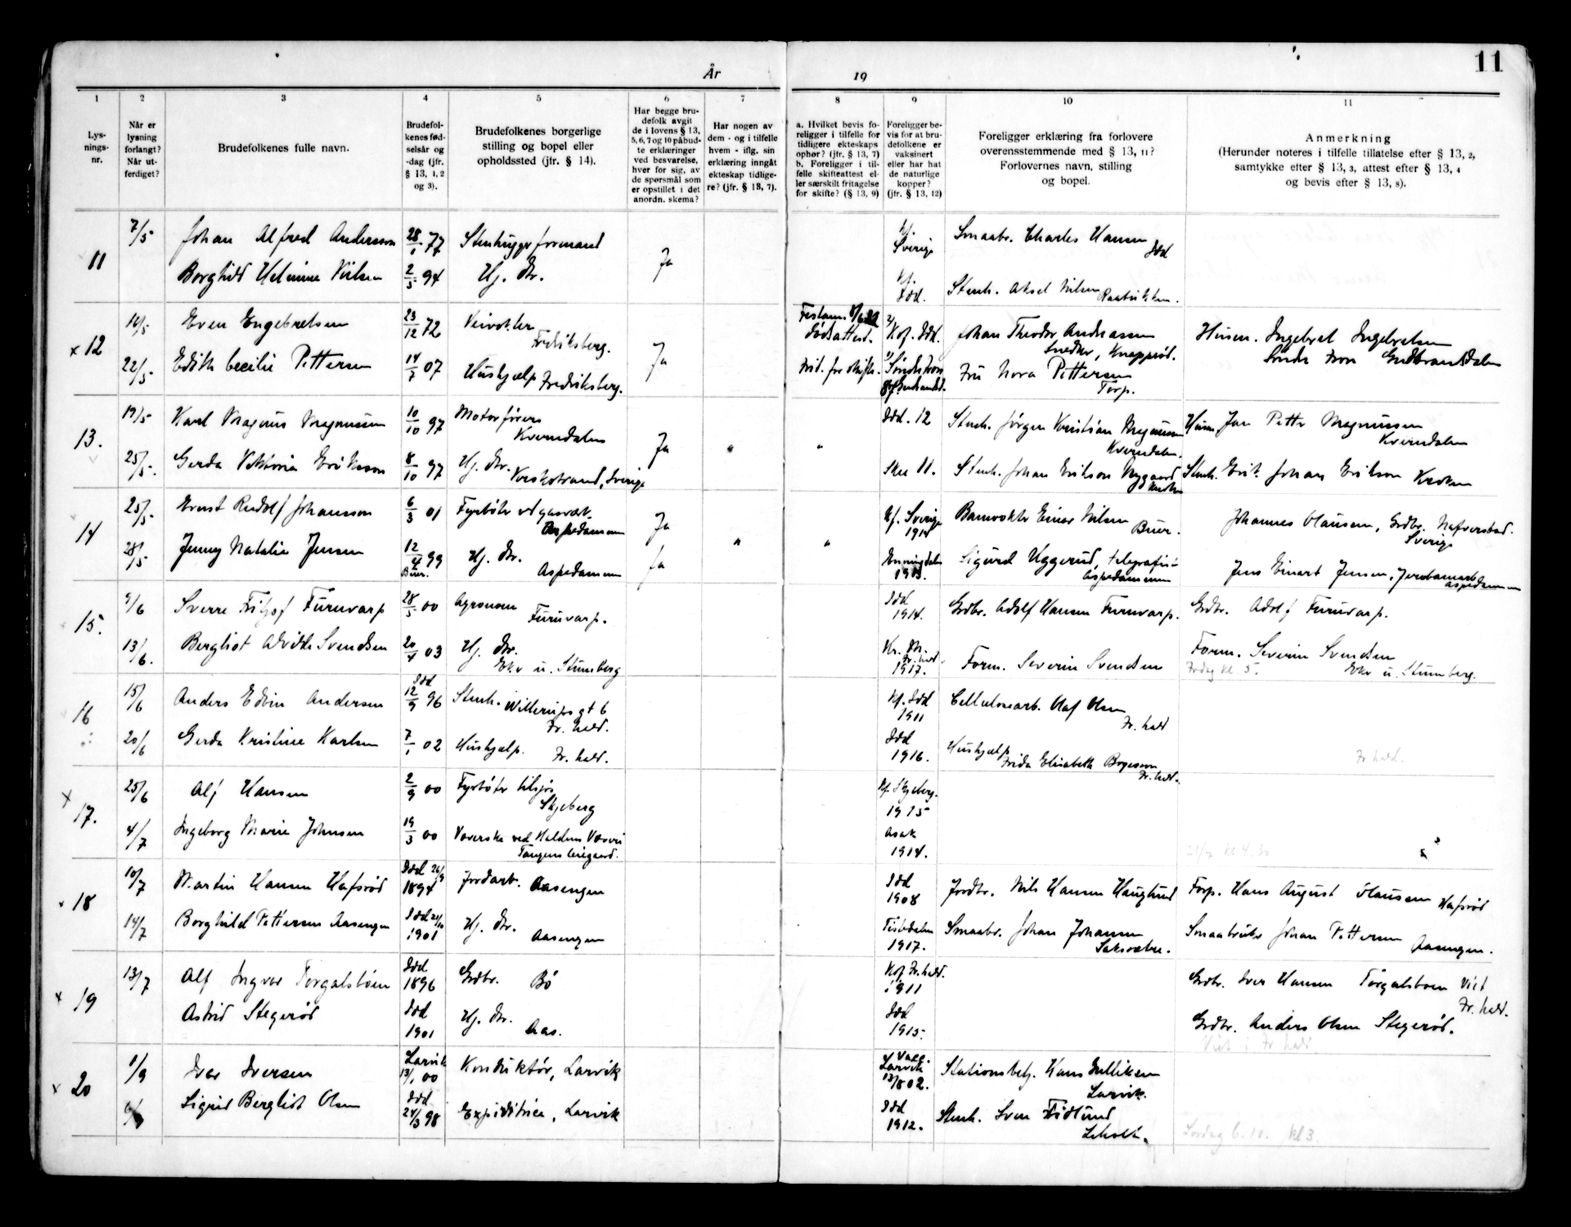 11
År
19
1
2
3
4
5
6
7
8
9
10
11
Lys-
nings-
nr.
Når er
lysning
forlangt?
Når ut-
ferdiget?
Brudefolkenes fulle navn.
Brudefol-
kenes fød-
selsår og
-dag (jfr.
§ 13, 1, 2
og 3).
Brudefolkenes borgerlige
stilling og bopel eller
opholdssted (jfr. § 14).
Har begge bru-
defolk avgit
de i lovens § 13,
5, 6, 7 og 10 påbud-
te erklæringer
ved besvarelse,
hver for sig, av
de spørsmål som
er opstillet i det
anordn. skema?
Har nogen av
dem - og i tilfelle
hvem - iflg. sin
erklæring inngått
ekteskap tidlige-
re? (jfr. § 13, 7).
a. Hvilket bevis fo-
religger i tilfelle for
tidligere ekteskaps
ophør? (jfr. § 13, 7)
b. Foreligger i til-
felle skifteattest el-
ler særskilt fritagelse
for skifte? (§ 13, 9)
Foreligger be-
vis for at bru-
defolkene er
vaksinert
eller har hat
de naturlige
kopper?
(jfr. § 13, 12)
Foreligger erklæring fra forlovere
overensstemmende med § 13, 11?
Forlovernes navn, stilling
og bopel.
Anmerkning
(Herunder noteres i tilfelle tillatelse efter § 13, 2,
samtykke efter § 13, 3, attest efter § 13, 4
og bevis efter § 13, 8).
11
7/5
Johan Alfred Andersson
28/1 77
Stenhuggerformand
Ja
Sverige
Smaabr. Charles Hansen
Idd
Borghild Helmine Nilsen
2/5 94
Hj. dr.
Idd.
Stenh. Aksel Nilsen
x 12
10/5
Even Engebretsen
23/12 72
Veivokter
Fredriksberg.
Ja
Dødsattest.
Kof. Idd.
Johan Theodor Andreassen
Snedker, Knapperød.
Husm. Ingebret Ingebretsen
Søndre Fron Gudbrandsdalen
22/5
Edith Cecilie Pettersen
14/7 07
Hushjælp Fredriksberg.
Fru Nora Pettersen
Torp.
13.
19/5
Karl Magnus Magnussen
10/10 97
Motorfører
Kverndalen
Ja
"
"
Idd. 12
Stenh. Jørgen Kristian Magnussen
Kverndalen.
Husm. Jan Petter Magnussen
Kverndalen
25/5.
Gerda Viktoria Eriksson
8/10 97
Hj. dr.
Sverige
Skee 11.
Stenh. Johan Erikson Nygaard
Kroken
Stenh. Erik Johan Erikson Kroken
14
25/5
Ernst Rudolf Johansson
6/3 01
Fyrbøter
Aspedammen
Ja
"
"
Kf. Sverige
1914
Banevokter Einar Nilsen
Buer.
Johannes Olaussen, Grdbr. Nafverstad.
Sverige
28/5
Jenny Natalie Jensen
12/4 99
Buer.
Hj. dr.
Aspedammen
Ja
Enningdalen
1913.
Sigurd Uggerud, telegrafist
Aspedammen
Jens Einart Jensen, Jernbanearb.
Aspedammen
15.
9/6
Sverre Fritjof Furuvarp
28/5 00
Agronom
Furuvarp.
Idd
1914.
Grdbr. Adolf Hansen Furuvarp.
Grdbr. Adolf Furuvarp.
13/6.
Bergliot Alvilde Svendsen
20/4 03
Hj. dr.
Eker u. Stumberg
1917.
Form. Severin Svendsen
Form. Severin Svendsen
Eker u. Stumberg.
16
15/6
Anders Edvin Andersen
Idd
12/9 96
Stenh. Wittrupsgt 6
Fr. hald.
Kf. Idd
1911
Cellulosearb. Olaf Olsen
Fr. hald
20/6
Gerda Kristine Karlsen
7/1 02
Hushjælp.
Fr. hald.
Idd
1916.
Hushjælp
Frida Elisabeth Børgesen
Fr. hald.
Fr. hald.
x 17.
25/6
Alf Hansen
2/9 00
Fyrbøter tilsjøs
Skjeberg
Kf. Skjeberg.
1915
4/7
Ingeborg Marie Johnsen
19/3 00
Væverske ved Haldens Væveri
Asak
1914.
18
10/7
Martin Hansen Hafsrød
Idd 26/9
1894
Jordarb. Aasengen
Idd
1908
Jordbr. Nils Hansen Hauglund
Forp. Hans August Olausen Hafsrød
14/7
Borghild Pettersen Aasengen
Idd
1901
Hj. dr.
Aasengen
Tistedalen
1917.
Smaabr. Johan Johansen
Smaabruker Johan Pettersen Aasengen.
x 19
13/7
Alf Ingvar Torgalsbøen
Idd
1896
Grdbr.
Bø
Kof. Fr. hald.
1911
Grdbr. Iver Hansen Torgalsboen Viet
Fr. hald.
Astrid Stegerød
Idd
1901
Hj. dr.
Aas.
Idd
1915.
Grdbr. Anders Olsen Stegerød.
Viet i Fr hald
x 20
1/9
Ivar Iversen
Larvik
13/1 00
Konduktør, Larvik
Larvik
Stationsbetj. Hans Gulliksen
Larvik.
Sigrid Bergliot Olsen
Idd
24/3 98
Expeditrice, Larvik
Idd
1912.
Stenh. Sven Fridlund
Liholt.
Lørdag 6. 10. kl 3.